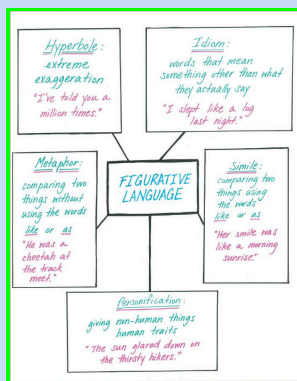 Hyperbole:
extreme
exaggeration
"I've told you a
million times."
Idiom:
words that mean
something other than what
they actually say
"I slept like a log
last night."
Metaphor:
comparing two
things without
using the words
like or as
"He was a
cheetah at
the track
meet."
FIGURATIVE
LANGUAGE
Simile:
comparing two
things using
the words
like or as
"Her smile was
like a morning
sunrise."
Personification:
giving non-human things
human traits
"The sun glared down on
the thirsty hikers."